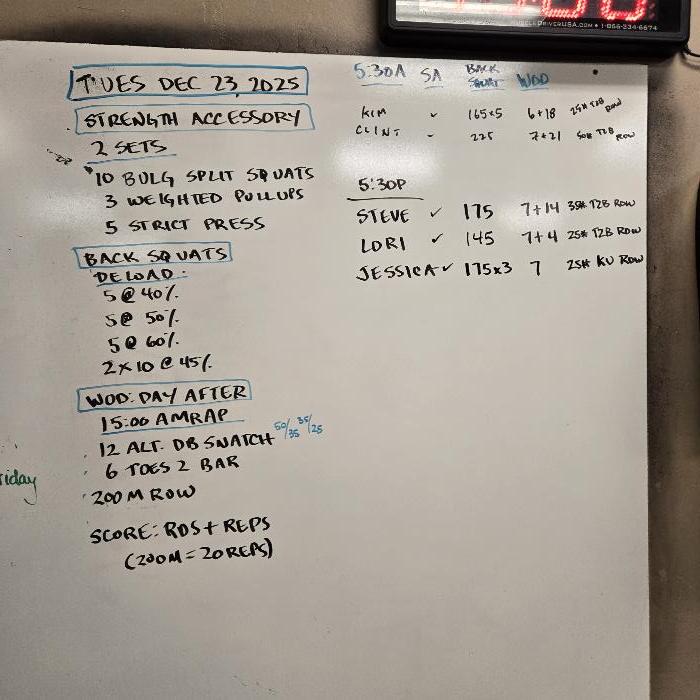 TUES DEC 23, 2025
STRENGTH ACCESSORY
2 SETS
10 BULG SPLIT SQUATS
3 WEIGHTED PULLUPS
5 STRICT PRESS
BACK SQUATS
DELOAD:
5 @ 40%
5 @ 50%
5 @ 60%
2 x 10 @ 45%
WOD: DAY AFTER
15:00 AMRAP
12 ALT. DB SNATCH 50/35 35/25
6 TOES 2 BAR
200 M ROW
SCORE: RDS + REPS
(200M = 20 REPS)
5:30A SA BACK SQUAT WOD
KIM ✓ 165x5 6+18 25# T2B ROW
CLINT - 225 7+21 50# T2B ROW
5:30P
STEVE ✓ 175 7+14 35# T2B ROW
LORI ✓ 145 7+4 25# T2B ROW
JESSICA ✓ 175x3 7 25# KU ROW
riday